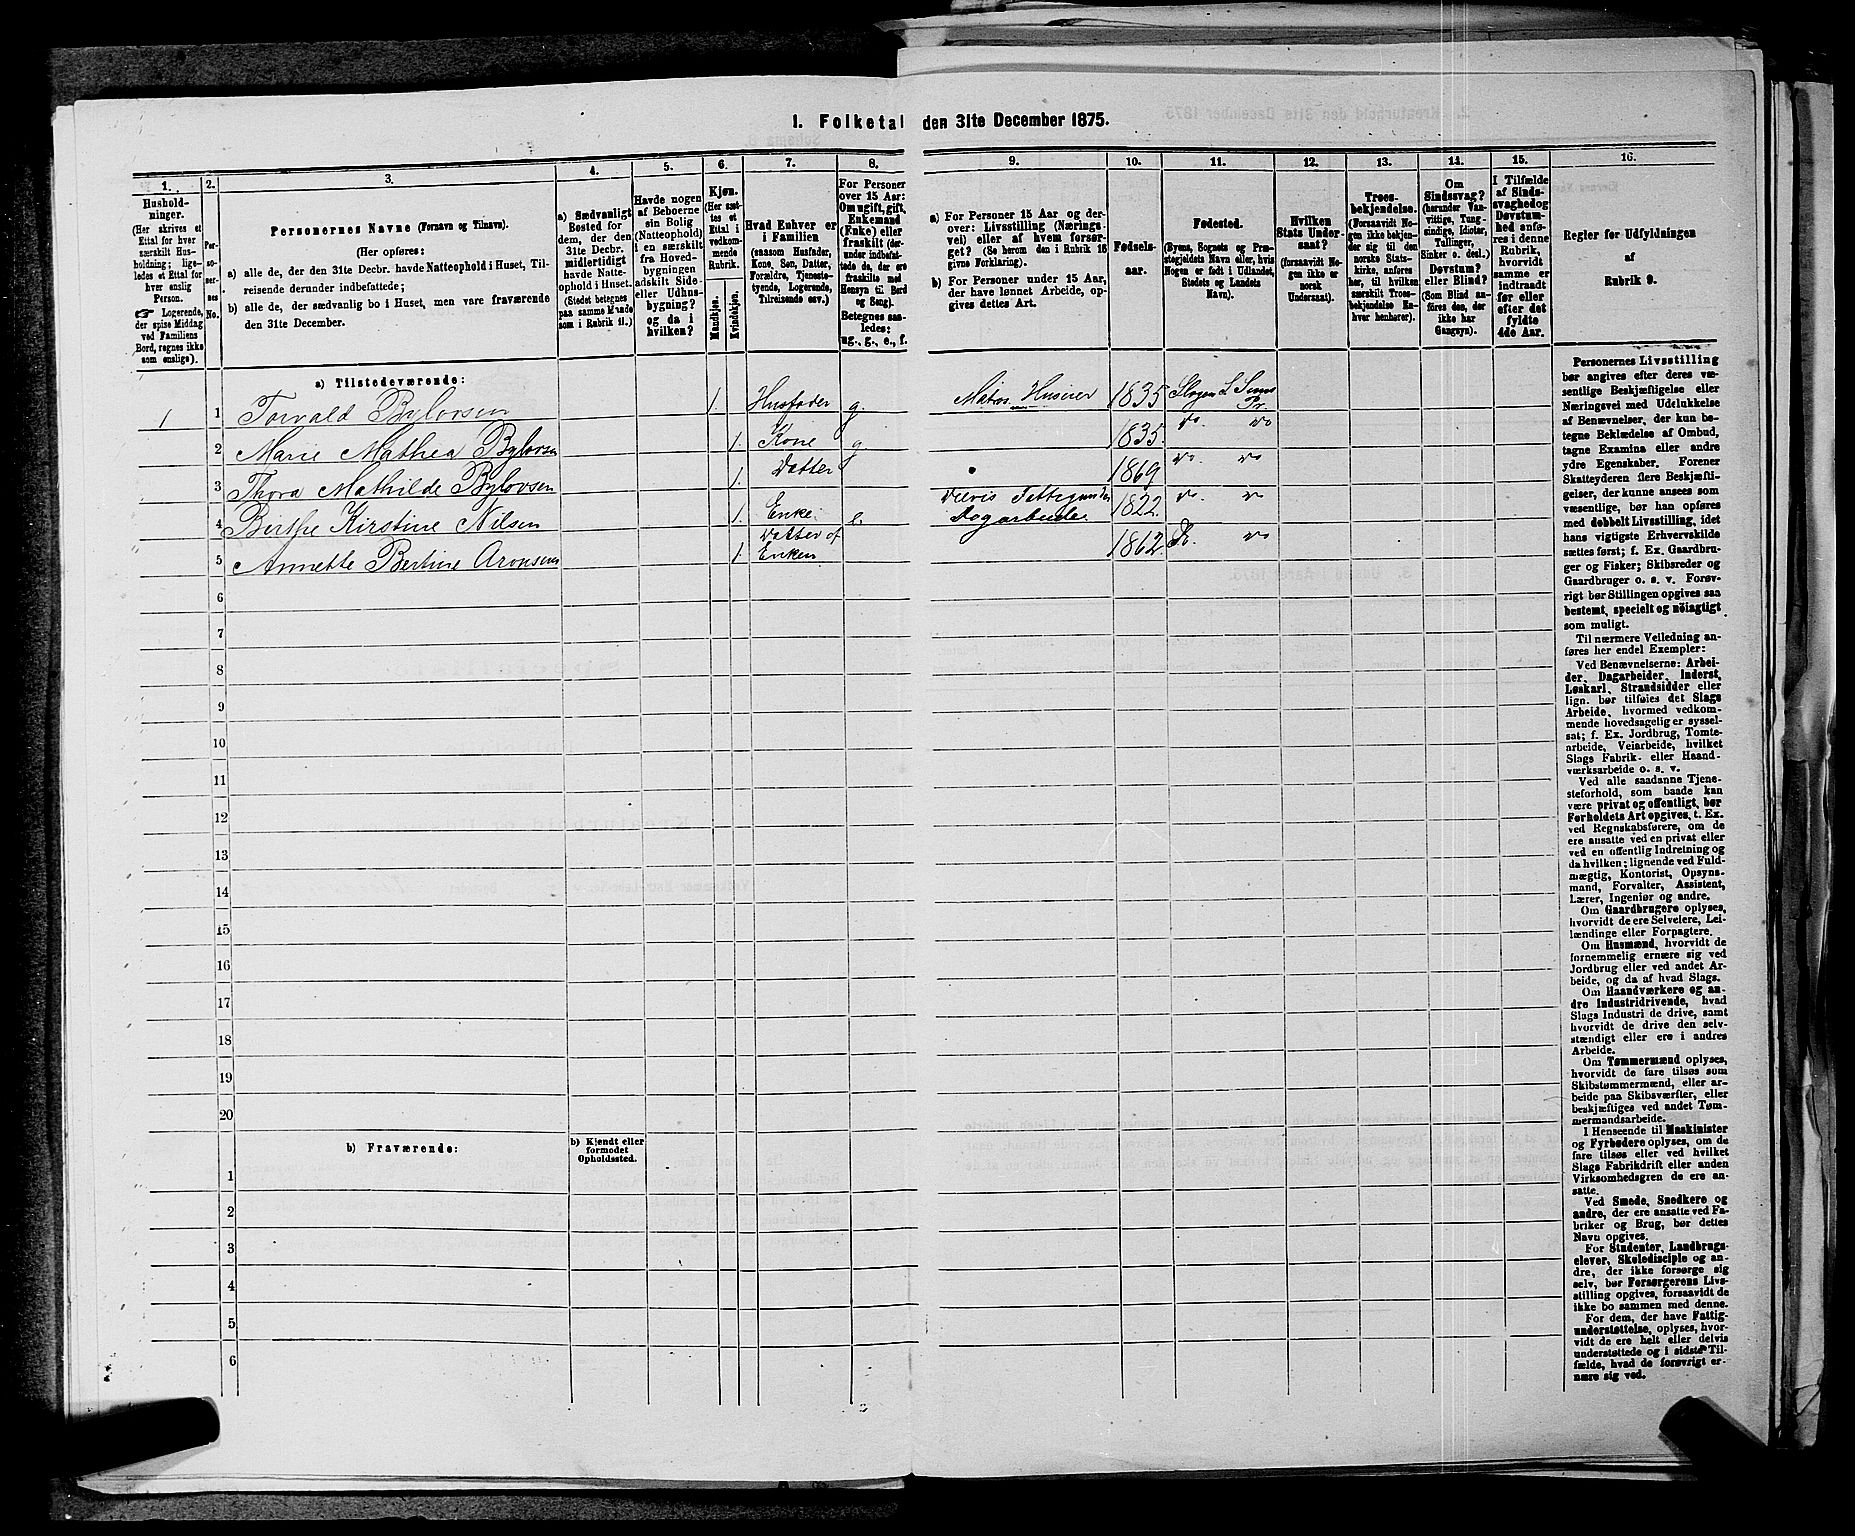 1. Folketal den 31te December 1875.
1.
2.
3.
4.
5.
6.
7.
8.
9.
10.
11.
12.
13.
14.
15.
16.
Husholdninger.
(Her skrives et
Ettal for hver
særskilt Husholdning; ligeledes
et Ettal for
hver enslig
Person.
☞ Logerende,
der spise Middag
ved Familiens
Bord, regnes ikke
som enslige).
Personernes
No.
Personernes Navne (Fornavn og Tilnavn).
(Her opføres:
a) alle de, der den 31te Decbr. havde Natteophold i Huset, Tilreisende
derunder indbefattede;
b) alle de, der sædvanlig bo i Huset, men vare fraværende
den 31te December.
a) Sædvanligt
Bosted for
dem, der den
31te Decbr.
midlertidigt
havde Natteophold
i Huset.
(Stedet betegnes
paa samme Maade
som i Rubrik 11.)
Havde nogen
af Beboerne
sin Bolig
(Natteophold)
i en særskilt
fra Hovedbygningen
adskilt Side-
eller Udhusbygning?
og da i
hvilken?
Kjøn.
(Her sættes
et
Ettal i
vedkommende
Rubrik.
Mandkjøn.
Kvindekjøn.
Hvad Enhver er
i Familien
(saasom Husfader,
Kone, Søn, Datter,
Forældre, Tjenestetyende,
Logerende,
Tilreisende osv.)
For Personer
over 15 Aar:
Om ugift, gift,
Enkemand
(Enke) eller
fraskilt (derunder
indbefattede
de, der ere
fraskilte med
Hensyn til Bord
og Seng).
Betegnes saaledes:
ug., g., e., f.
a) For Personer 15 Aar og derover:
Livsstilling (Næringsvei)
eller af hvem forsørget?
(Se herom den i Rubrik 16
givne Forklaring).
b) For Personer under 15 Aar,
der have lønnet Arbeide, opgives
dettes Art.
Fødselsaar.
Fødested.
(Byens, Sognets og Præstegjeldets
Navn eller, hvis
Nogen er født i Udlandet,
Stedets og Landets
Navn).
Hvilken
Stats Undersaat?
(forsaavidt Nogen
ikke er
norsk
Undersaat).
Troesbekjendelse.
(Forsaavidt Nogen
ikke bekjender
sig til den
norske Statskirke,
anføres
her, til hvilken
særskilt Troesbekjendelse
Enhver
henhører).
Om
Sindssvag?
(herunder Vanvittige,
Tungsindige,
Idioter,
Tullinger,
Sinker o. desl.)
Døvstum?
eller Blind?
(Som Blind anføres
den, der
ikke har
Gangsyn).
I Tilfælde
af Sindssvaghed
og
Døvstumhed
anføres
i denne
Rubrik,
hvorvidt
samme er
indtraadt
før eller
efter det
fyldte
4de Aar.
Regler for Udfyldningen
af
Rubrik 9.
a) Tilstedeværende:
1 1 Torvald Bylovsen 1. Husfader g. Husirer 1835
2 Marie Mathea Bylovsen 1. Kone g 1835. do. do
3 Thora Mathilde Bylovsen 1. Datter 1869 do. do
4 Birthe Kirstine Nilsen 1. Enke e. Dagarbeide. 1822. do. do
5 Annette Bertine Aronsen 1. Datter af Enken 1862. do
6
7
8
9
10
11
12
13
14
15
16
17
18
19
20
b) Fraværende:
b) Kjendt eller
formodet
Opholdssted.
1
2
3
4
5
6
Personernes Livsstilling
bør angives efter deres væsentlige
Beskjæftigelse eller
Næringsvei med Udelukkelse
af Benævnelser, der kun betegne
Beklædelse af Ombud,
tagne Examina eller andre
ydre Egenskaber. Forener
Skatteyderen flere Beskjæftigelser,
der kunne ansees som
væsentlige, bør han opføres
med dobbelt Livsstilling, idet
hans vigtigste Erhvervskilde
sættes først; f. Ex. Gaardbruger
og Fisker; Skibsreder og
Gaardbruger o. s. v. Forøvrigt
bør Stillingen opgives saa
bestemt, specielt og nöiagtigt
som muligt.
Til nærmere Veiledning anføres
her endel Exempler:
Ved Benævnelserne: Arbeider,
Dagarbeider, Inderst,
Løskarl, Strandsidder eller
lign. bør tilføies det Slags
Arbeide, hvormed vedkommende
hovedsagelig er sysselsat;
f. Ex. Jordbrug, Tomtearbeide,
Veiarbeide, hvilket
Slags Fabrik- eller Haandværksarbeide
o. s. v.
Ved alle saadanne Tjenesteforhold,
som baade kan
være privat og offentligt, bør
Forholdets Art opgives, t. Ex.
ved Regnskabsførere, om de
ere ansatte ved en privat eller
ved en offentlig Indretning og
da hvilken; lignende ved Fuldmægtig,
Kontorist, Opsynsmand,
Forvalter, Assistent,
Lærer, Ingeniør og andre.
Om Gaardbrugere oplyses,
hvorvidt de ere Selveiere, Leilændinge
eller Forpagtere.
Om Husmænd, hvorvidt de
fornemmelig ernære sig ved
Jordbrug eller ved andet Arbeide,
og da af hvad Slags.
Om Haandværkere og andre
Industridrivende, hvad
Slags Industri de drive, samt
hvorvidt de drive den selvstændigt
eller ere i andres
Arbeide.
Om Tømmermænd oplyses,
hvorvidt de fare tilsøs som
Skibstømmermænd, eller arbeide
paa Skibsværfter, eller
beskjæftiges ved andet Tømmermandsarbeide.
I Henseende til Maskinister
og Fyrbødere oplyses, om de
fare tilsøs eller ved hvilket
Slags Fabrikdrift eller anden
Virksomhedsgren de ere ansatte.
Ved Smede, Snedkere og
andre, der ere ansatte ved Fabriker
og Brug, bør dettes
Navn opgives.
For Studenter, Landbrugselever,
Skoledisciple og andre,
der ikke forsørge sig
selv, bør Forsørgerens Livsstilling
opgives, forsaavidt de
ikke bo sammen med denne.
For dem, der have Fattigunderstøttelse,
oplyses, hvorvidt
de ere helt eller delvis
understøttede og i sidste Tilfælde,
hvad de forøvrigt ernære
sig ved.